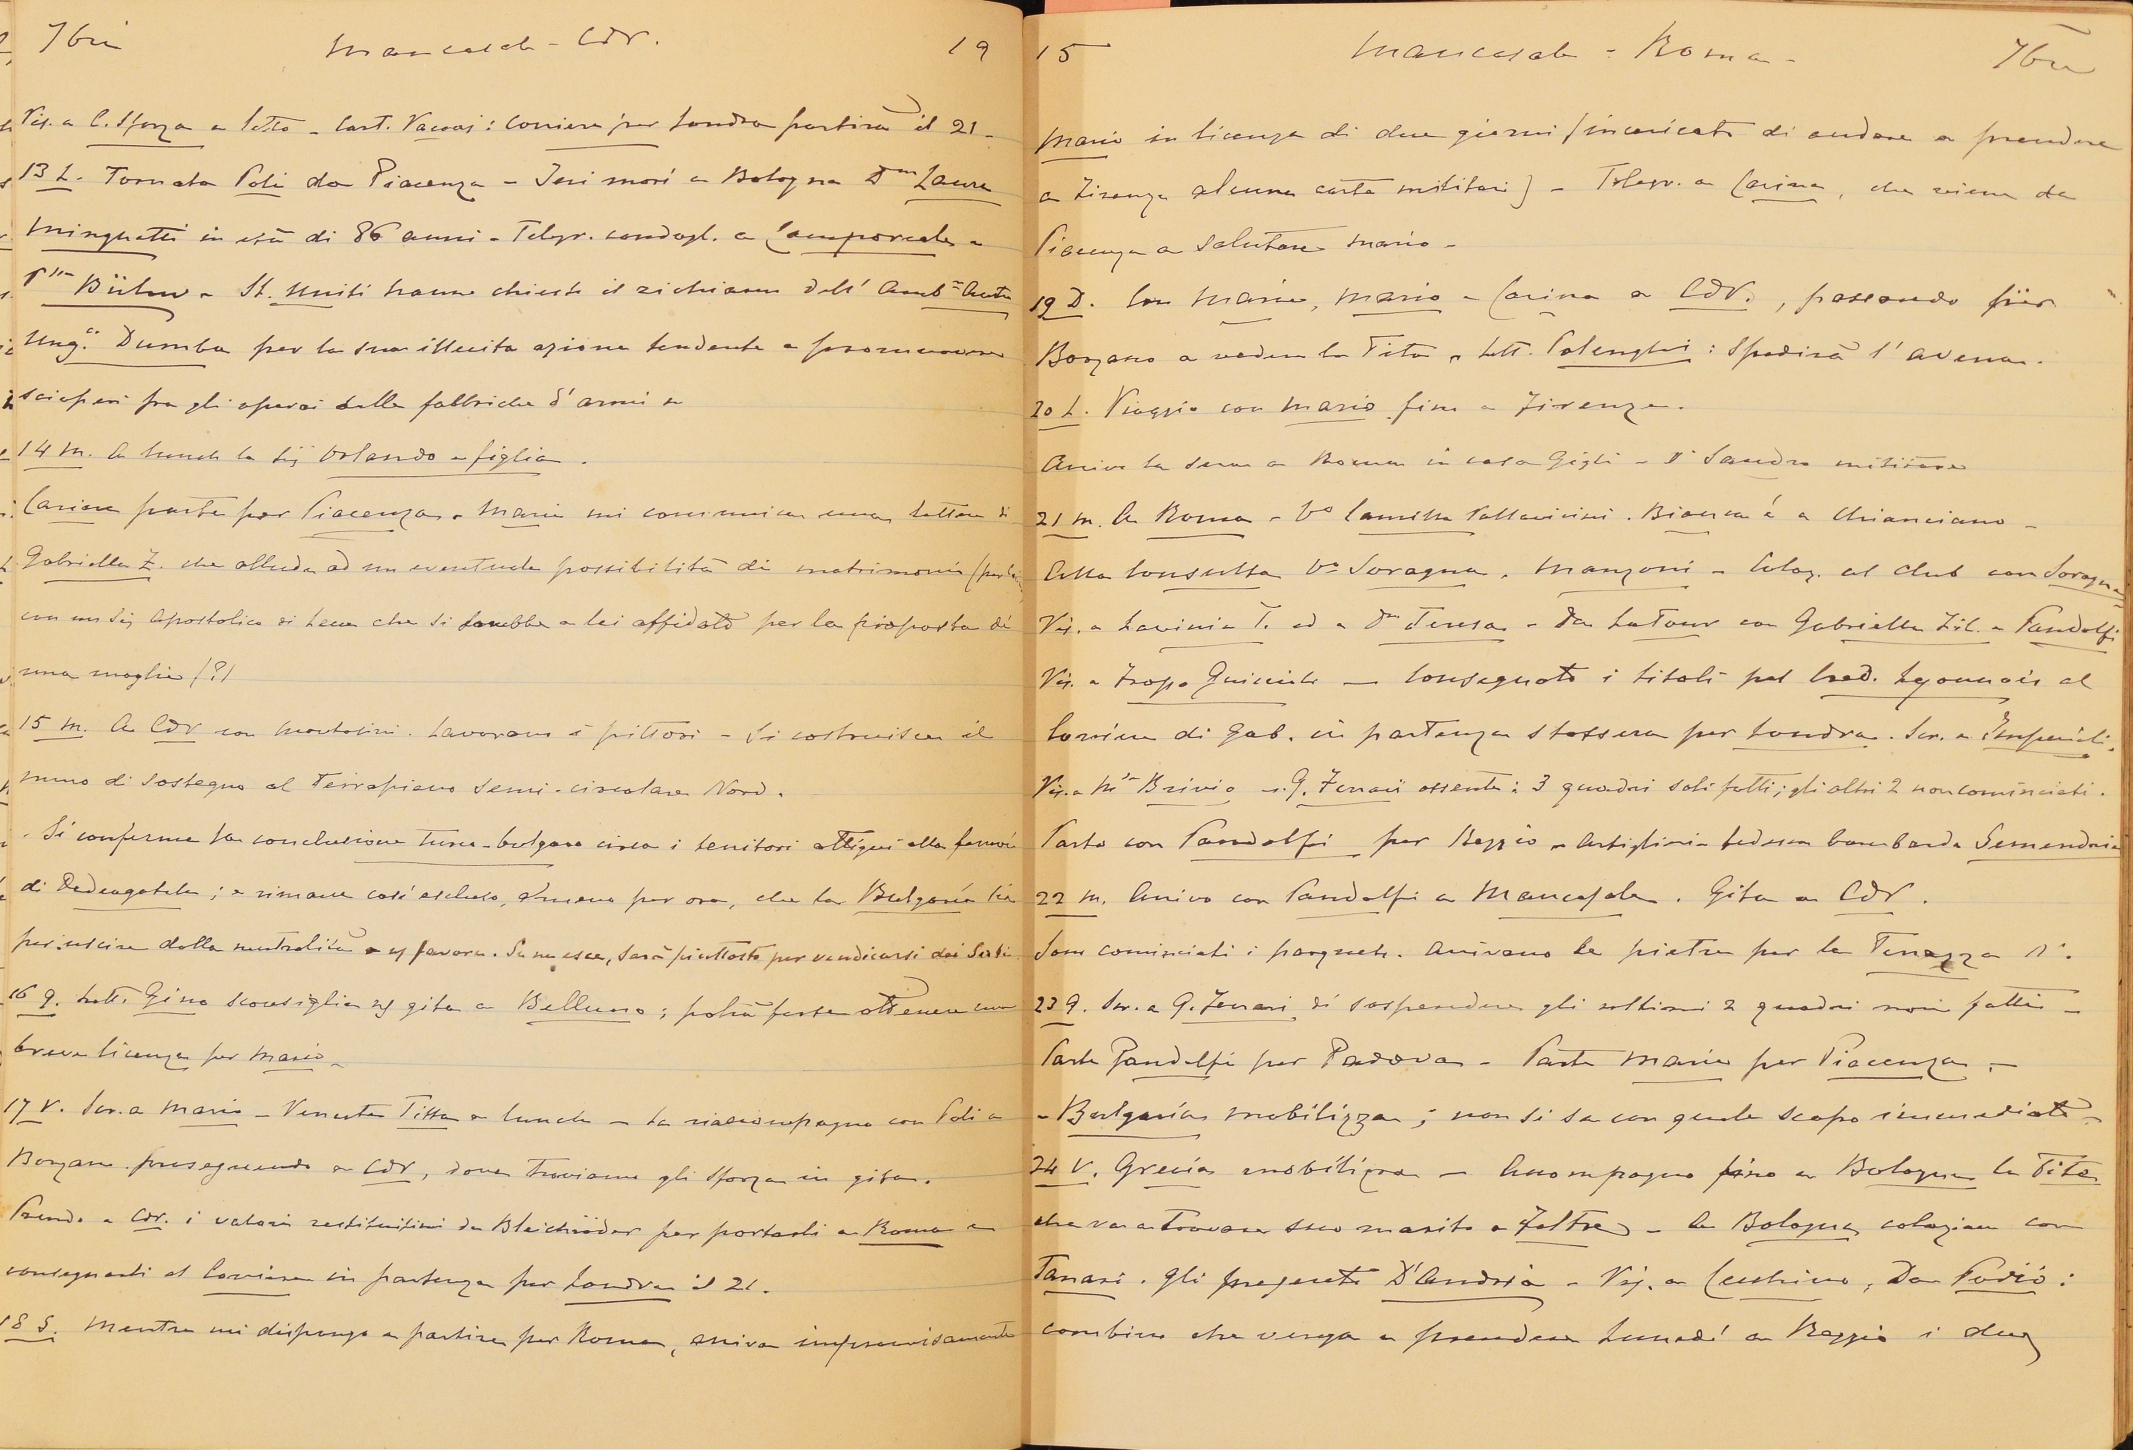 7bre Mancasale - CdV. 19
Vis. a C. Sforza a letto - Cart. Vaccaj: Corriere per Londra partirà il 21 -
13 L. Tornata Poli da Piacenza - Ieri morì a Bologna Dna Laura
Minghetti in età di 86 anni - Telegr. condogl. a Camporeale e
Pssa Bülow - St. Uniti hanno chiesto il richiamo dell' Ambre Austro
Ungco Dumba per la sua illecita azione tendente a promuovere
scioperi fra gli operai delle fabbriche d'armi -
14 M. A lunch la Sig Orlando e figlia.
Carina parte per Piacenza - Maria mi comunica una lettera di
Gabriella Z. che allude ad un eventuale possibilità di matrimonio
con un Sig Apostolico di Lecce che si sarebbe a lei affidato per la proposta di
una moglie (?)
15 M. A CdV con Montorsi. Lavorano i pittori - Si costruisce il
muro di sostegno al Terrapieno semi-circolare Nord.
- Si conferma la conclusione turco-bulgara circa i territori attigui alla ferrovia
di Dedeagatch; e rimane così escluso, almeno per ora, che la Bulgaria sia
per uscire dalla neutralità a ns favore. Se ne esce, sarà piuttosto per vendicarsi dei Serbi
16 G. Lett. Gino sconsiglia ns gita a Belluno; potrà forse ottenere una
breve licenza per Mario -
17 V. Scr. a Mario - Venuta Titta a lunch - La riaccompagno con Poli a
Borzano proseguendo a CdV, dove troviamo gli Sforza in gita.
Prendo a CdV. i valori restituitimi da Bleichröder per portarli a Roma e
consegnarli al Corriere in partenza per Londra il 21.
18 S. Mentre mi dispongo a partire per Roma, arriva improvvisamente
15 Mancasale - Roma - 7bre
Mario in licenza di due giorni (incaricato di andare a prendere
a Firenze alcune carte militari) - Telegr. a Carina, che viene da
Piacenza a salutare Mario -
19 D. Con Maria, Mario e Carina a CdV., passando per
Borzano a vedere la Tita - Lett. Polenghi: Spedirà l'avena.
20 L. Viaggio con Mario fino a Firenze.
Arrivo la sera a Roma in casa Gigli - Sandro militare
21 M. A Roma - Va Camilla Pallavicini. Bianca è a Chianciano -
Alla Consulta Vo Soragna, Manzoni - Colaz. al Club con Soragna
Vis. a Lavinia T. ed a Dna Teresa - Da Latour con Gabriella Zil. e Pandolfi
Vis. a - Consegnato i titoli pel Cred. Lyonnais al
Corriere di Gab. in partenza stassera per Londra. Scr. a Imperiali.
Vis. a Msa Brivio - G. Ferrari assente: 3 quadri soli fatti; gli altri 2 non cominciati.
Parto con Pandolfi per Reggio - Artiglieria tedesca bombarda Semendria
22 M. Arrivo con Pandolfi a Mancasale. Gita a CdV.
Sono cominciati i parquets. Arrivano le pietre per la Terrazza
23 G. Scr. a G. Ferrari di sospendere gli ultimi 2 quadri non fatti -
Parte Pandolfi per Padova - Parte Maria per Piacenza. -
- Bulgaria mobilizza; non si sa con quale scopo immediato -
24 V. Grecia mobilizza - Accompagno fino a Bologna la Tita
che va a trovare suo marito a Feltre - A Bologna colazione con
Tanari. Gli presento D'Andria - Vis. a Cecchino, Da Podio:
combino che venga a prendere Lunedì a Reggio i due